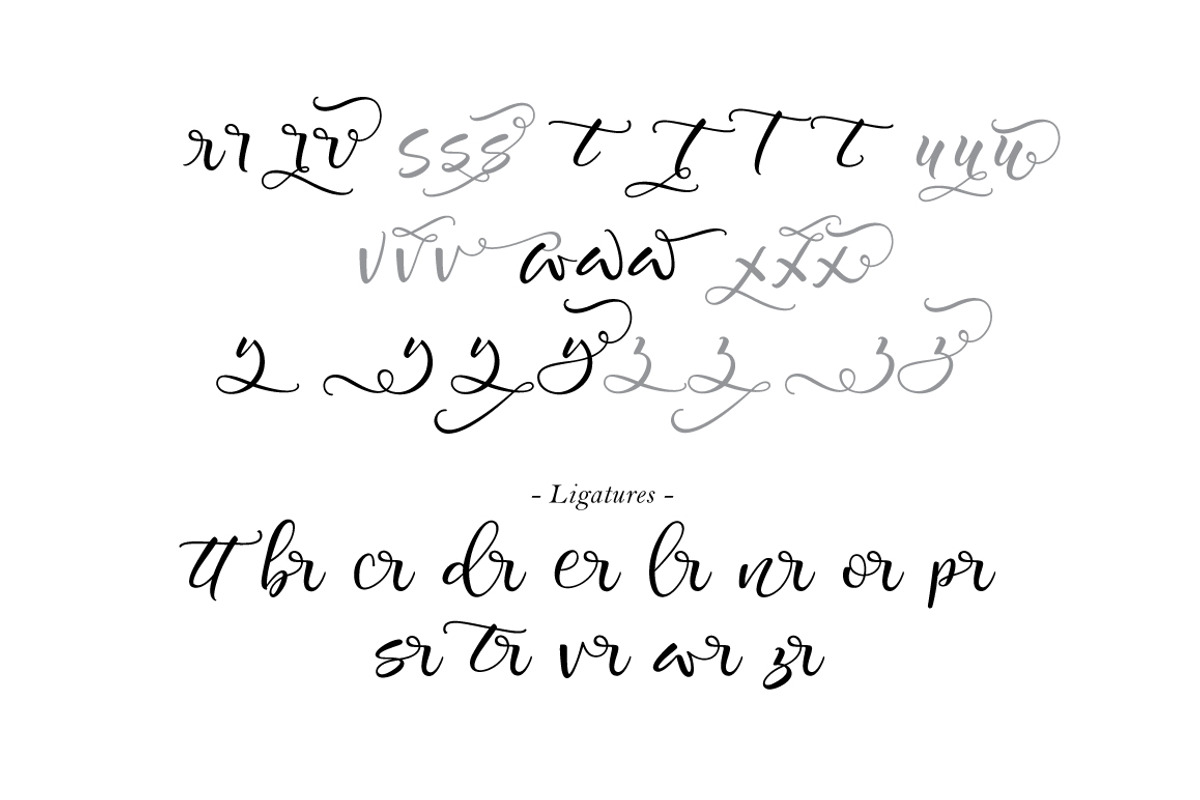 rr rr sss t t t t uuu
vvv www xxx
y y y y z z z z
- Ligatures -
tt br cr dr er lr nr or pr
sr tr vr wr zr